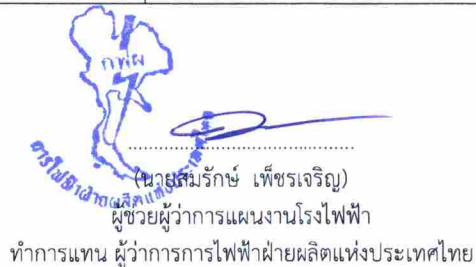 กฟผ
การไฟฟ้าฝ่ายผลิตแห่งประเทศไทย
(นายสมรักษ์ เพ็ชรเจริญ)
ผู้ช่วยผู้ว่าการแผนงานโรงไฟฟ้า
ทำการแทน ผู้ว่าการการไฟฟ้าฝ่ายผลิตแห่งประเทศไทย